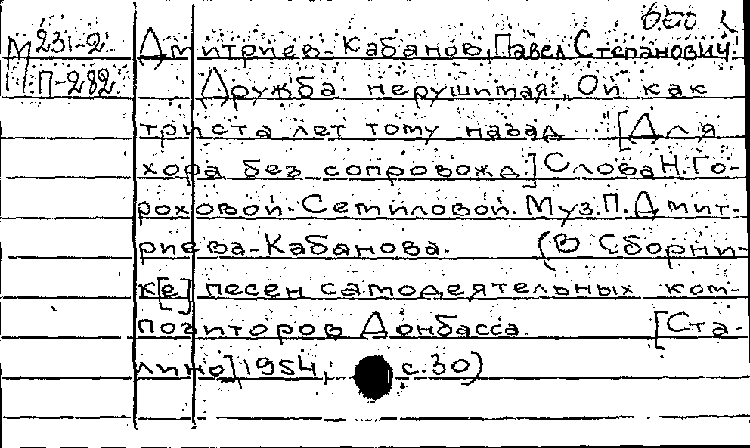 М 231-2 Дмитриев-Кабанов, Павел Степанович.
П-282 Дружба нерушимая: „Ой как
триста лет тому назад [Для
хора без сопровожд.] Слова Н. Го-
роховой-Семиловой. Муз. П. Дмит-
риева-Кабанова. (В Сборни-
к[е] песен самодеятельных ком-
позиторов Донбасса. [Ста-
лино] 1954, с. 30)